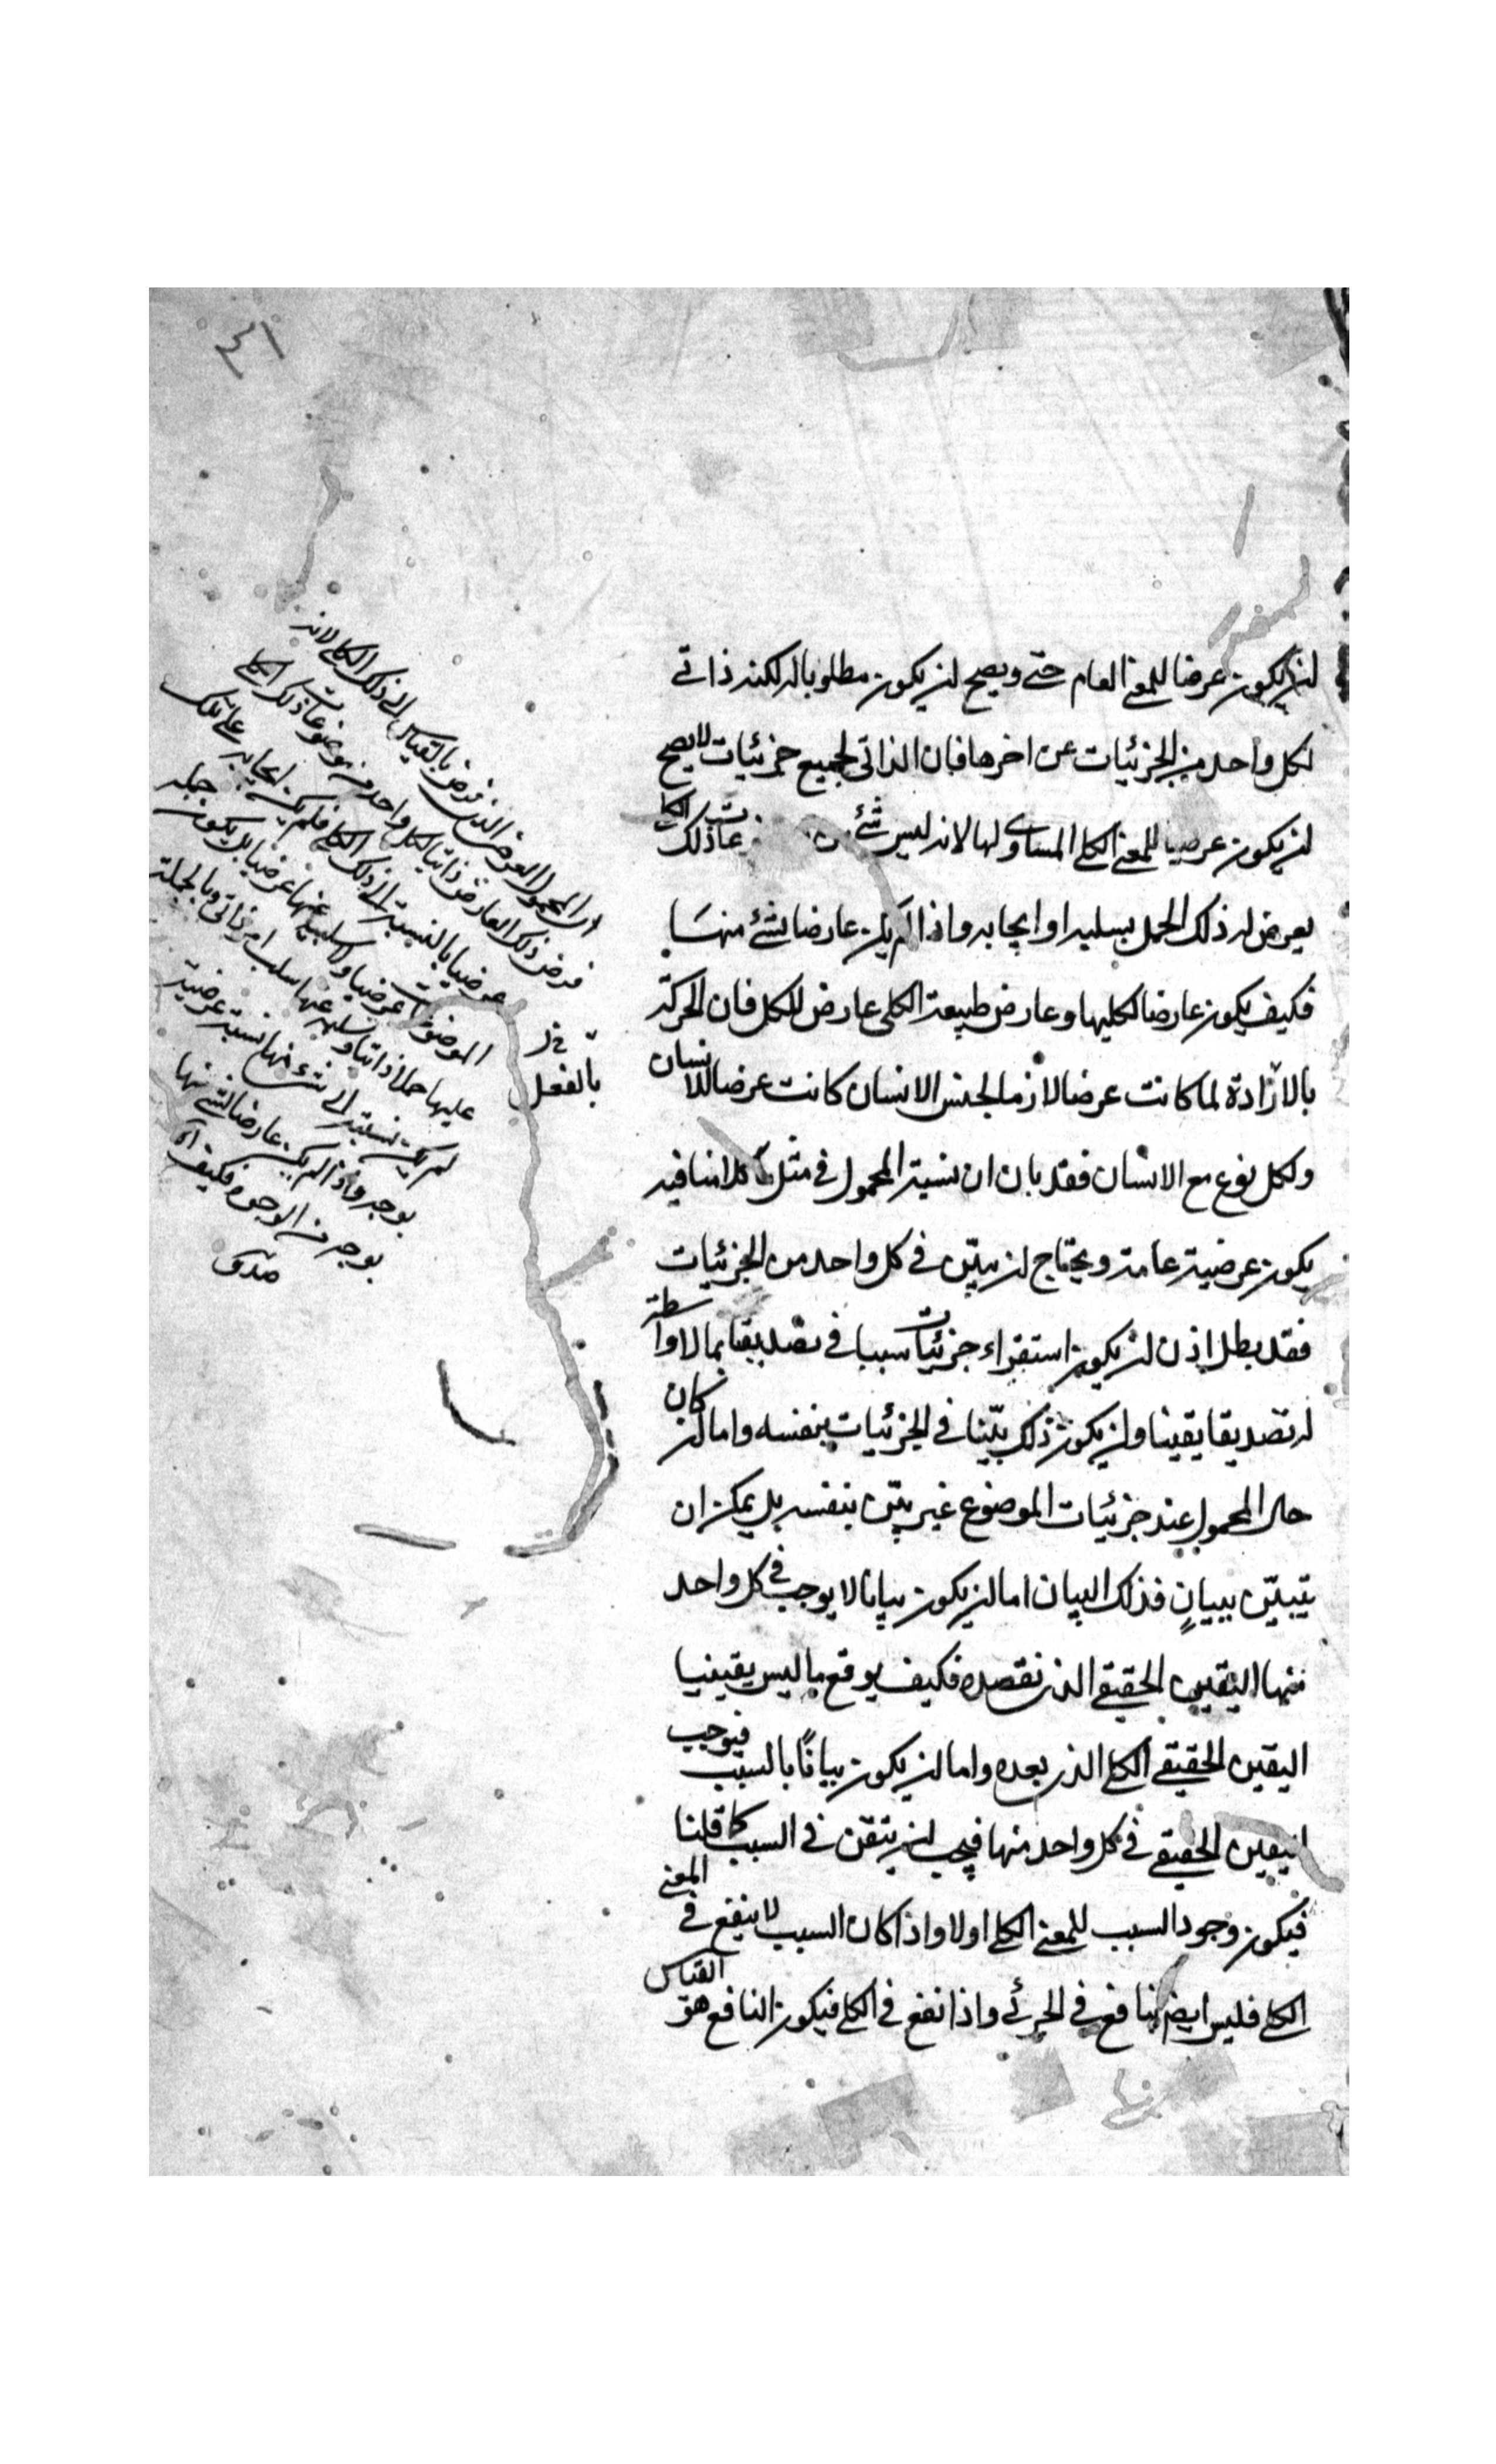 لن يكون عرضا للمعنى العام حتى ويصح لن يكون مطلوبا له لكنه ذاتي
لكل واحد من الجزئيات عن اخرها فبان الذاتي لجميع جزئيات لا يصح
لن يكون عرضيا للمعنى الكلي المساوي لها لانه ليس شئ من عات ذلك الكلي
يعرض له ذلك الحمل بسلبه او ايجابه واذا لم يكن عارضا لشئ منها
فكيف يكون عارضا لكليها وعارض طبيعة الكلي عارض للكل فان الحركة
بالارادة لما كانت عرضا لازما لجنس الانسان كانت عرضا للانسان
ولكل نوع مع الانسان فقد بان ان نسبة المحمول في مثل كلامنا فيه
يكون عرضية عامة ويحتاج لن يبين في كل واحد من الجزئيات
فقد بطل اذن لن يكون استقراء جزئيات سببا في تصديقنا بما لا واسطة
له تصديقا يقينا ولن يكون ذلك بيّنا في الجزئيات بنفسه واما لن كان
حال المحمول عند جزئيات الموضوع غير بيّن بنفسه بل يمكن ان
يتبيّن ببيانٍ فذلك البيان اما لن يكون بيانا لا يوجب في كل واحد
منها اليقين الحقيقي الذي نقصده فكيف يوقع ما ليس يقينيا
اليقين الحقيقي الكلي الذي بعده واما لن يكون بيانًا بالسبب فيوجب
اليقين الحقيقي في كل واحد منها فيجب لن يتفق في السبب كما قلنا
فيكون وجود السبب للمعنى الكلي اولا واذا كان السبب لا ينفع في المعنى
الكلي فليس ايضا بنافع في الجزئي واذا نفع في الكلي فيكون النافع هو القياس
المحمول العرضي الذي فرض بالقياس الى ذلك الكلي لانه
فرض ذلك العارض ذاتيا لكل واحد من موضوعات ذلك الكلي
عرضيا بالنسبة الى ذلك الكلي فلم يكن ايجابه على تلك
الموضوعات عرضيا وسلبه عنها عرضيا بل يكون حمله
عليها حملا ذاتيا وسلبه عنها سلب امر ذاتي وبالجملة
لم يكن نسبته الى شئ منها نسبة عرضية
بوجه واذا لم يكن عارضا لشئ منها
بوجه من الوجوه فكيف اه
بالفعل